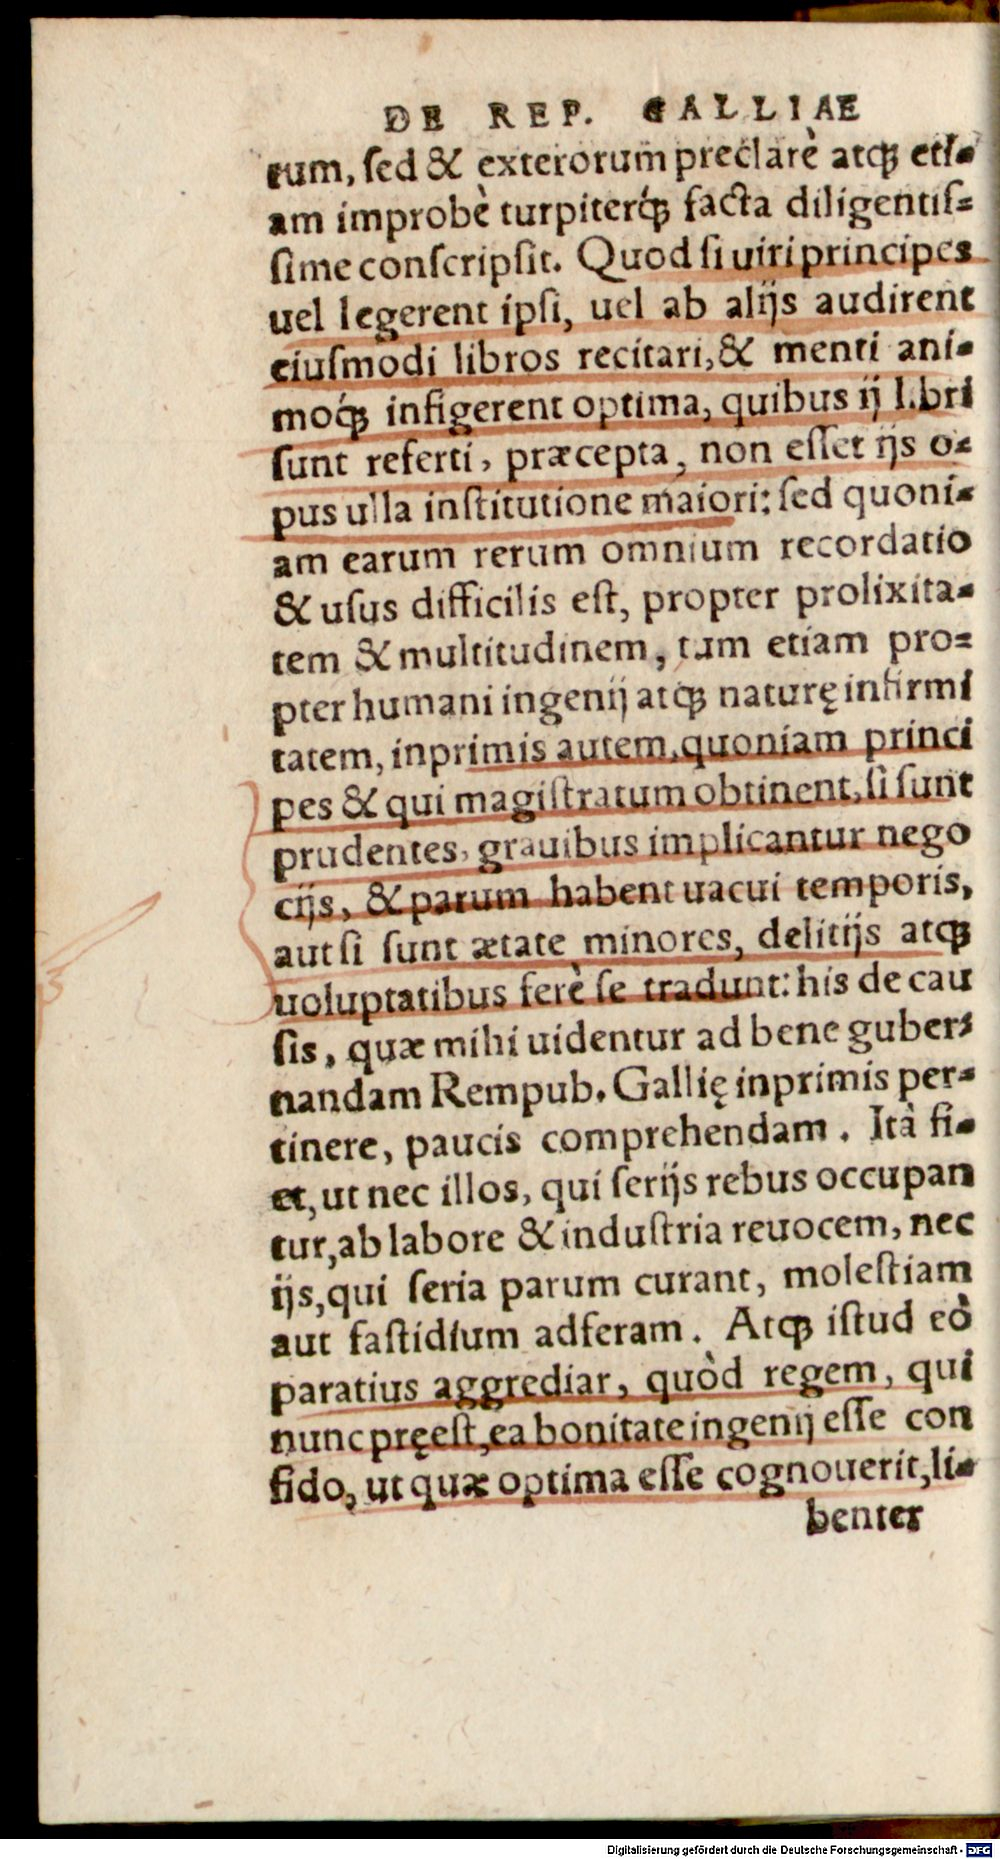 DE REP. GALLIAE
rum, sed & exterorum preclarè atq́ꝫ eti-
am improbè turpiterq́ꝫ facta diligentis-
sime conscripsit. Quod si uiri principes
uel legerent ipsi, uel ab alijs audirent
eiusmodi libros recitari, & menti ani-
moq́ꝫ infigerent optima, quibus ij libri
sunt referti, præcepta, non esset ijs o-
pus ulla institutione maiori: sed quoni-
am earum rerum omnium recordatio
& usus difficilis est, propter prolixita-
tem & multitudinem, tum etiam pro-
pter humani ingenij atqꝫ naturę infirmi
tatem, inprimis autem, quoniam princi
pes & qui magistratum obtinent, si sunt
prudentes, grauibus implicantur nego
cijs, & parum habent uacui temporis,
aut si sunt ætate minores, delitijs atqꝫ
uoluptatibus ferè se tradunt: his de cau
sis, quæ mihi uidentur ad bene guber-
nandam Rempub. Gallię inprimis per-
tinere, paucis comprehendam. Ità fi-
et, ut nec illos, qui serijs rebus occupan
tur, ab labore & industria reuocem, nec
ijs, qui seria parum curant, molestiam
aut fastidium adferam. Atqꝫ istud eò
paratius aggrediar, quòd regem, qui
nunc pręest, ea bonitate ingenij esse con
fido, ut quæ optima esse cognouerit, li-
benter
Digitalisierung gefördert durch die Deutsche Forschungsgemeinschaft - DFG